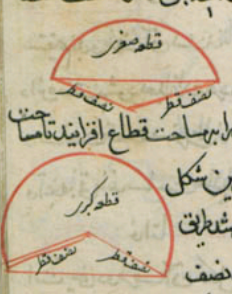 قطعه صغری
نصف قطر
نصف قطر
را بر مساحت قطاع افزایند تا مساحت
ین شکل
قطعه کبری
نصف قطر
نصف قطر
نصف